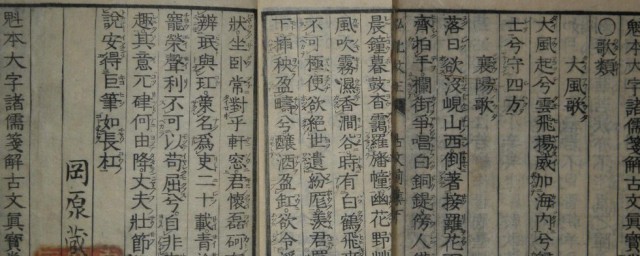 魁本大字諸儒箋解古文真寶
○歌類
大風歌
大風起兮雲飛揚威加海内兮
士兮守四方
襄陽歌
落日欲沒峴山西倒著接䍦花
齊拍手攔街争唱白銅鍉傍人
晨鐘暮鼓杳靄羅旛幢幽花野草
風吹霧濕香澗谷時有白鶴飛來
不可極便欲絶世遺紛厖羨君買
下插秧盈疇兮釀酒盈缸欲令浮
狀坐臥常對乎軒窓君懷磊砢
辨珉與玒策名為吏二十載青
寵榮聲利不可以苟屈兮自非
趣其意兀硉何由降丈夫壯節
說安得巨筆如長杠
岡原藏
魁本大字諸儒箋解古文眞寶